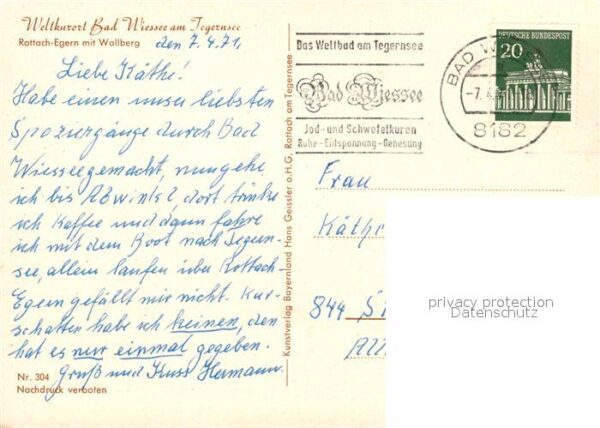 Weltkurort Bad Wiessee am Tegernsee
Rottach-Egern mit Wallberg
den 7.4.71,
Liebe Käthe!
Habe einen unser liebsten
Spaziergänge durch Bad
Wiessee gemacht, nun gehe
ich bis Abwinkl, dort trinke
ich Kaffee und dann fahre
ich mit dem Boot nach Tegern-
see, allein laufen über Rottach-
Egern gefällt mir nicht. Kur-
schatten habe ich keinen, den
hat es nur einmal gegeben.
Gruß und Kuss Hermann.
Nr. 304
Nachdruck verboten
Kunstverlag Bayernland Hans Geissler o.H.G., Rottach am Tegernsee
Das Weltbad am Tegernsee
Bad Wiessee
Jod- und Schwefelkuren
Ruhe - Entspannung - Genesung
BAD W
-7.4
8182
DEUTSCHE BUNDESPOST
20
Frau
Käthe
844
privacy protection
Datenschutz